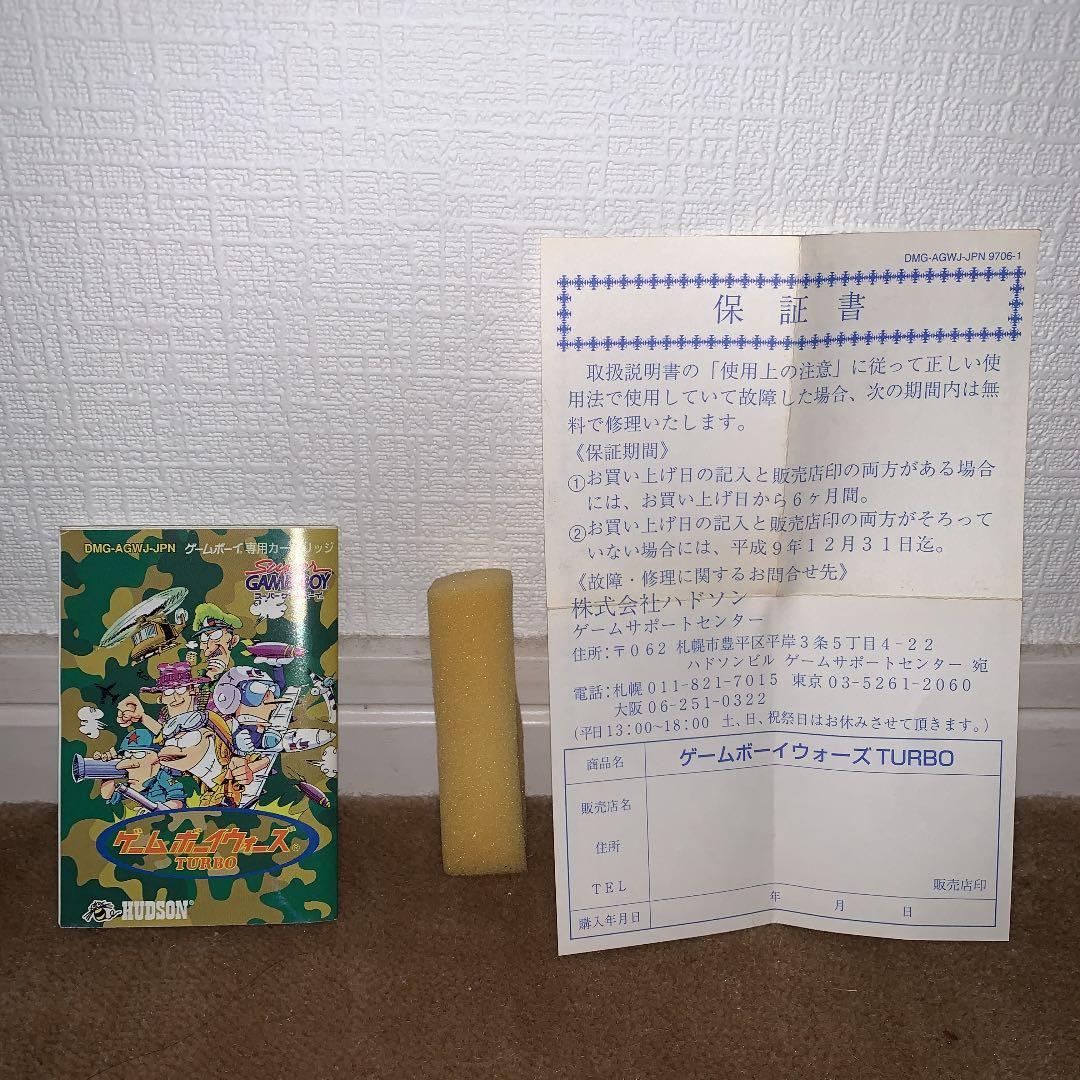 DMG-AGWJ-JPN ゲームボーイ専用カートリッジ
SUPER
GAMEBOY
ゲームボーイウォーズ®
TURBO
HUDSON®
DMG-AGWJ-JPN 9706-1
保証書
取扱説明書の「使用上の注意」に従って正しい使
用法で使用していて故障した場合、次の期間内は無
料で修理いたします。
《保証期間》
①お買い上げ日の記入と販売店印の両方がある場合
には、お買い上げ日から6ヶ月間。
②お買い上げ日の記入と販売店印の両方がそろって
いない場合には、平成9年12月31日迄。
《故障・修理に関するお問合せ先》
株式会社ハドソン
ゲームサポートセンター
住所:〒062 札幌市豊平区平岸3条5丁目4-22
ハドソンビル ゲームサポートセンター 宛
電話:札幌011-821-7015 東京03-5261-2060
大阪06-251-0322
(平日13:00~18:00 土、日、祝祭日はお休みさせて頂きます。)
商品名 ゲームボーイウォーズTURBO
販売店名
住所
TEL 販売店印
購入年月日 年 月 日